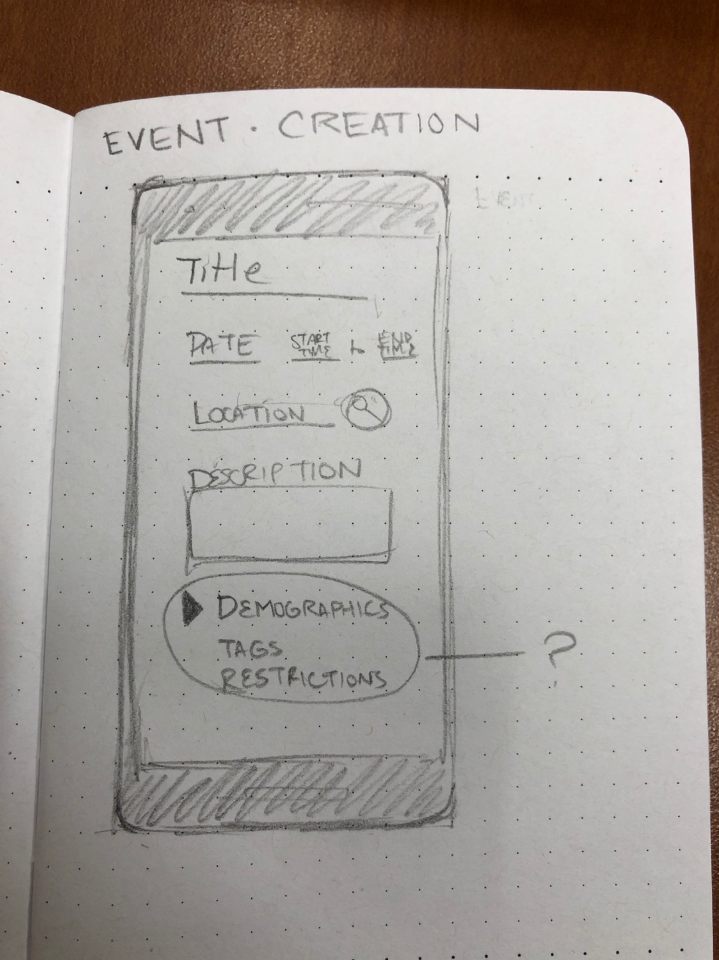 EVENT · CREATION
Title
DATE START TIME to END TIME
LOCATION
DESCRIPTION
DEMOGRAPHICS
TAGS
RESTRICTIONS
?